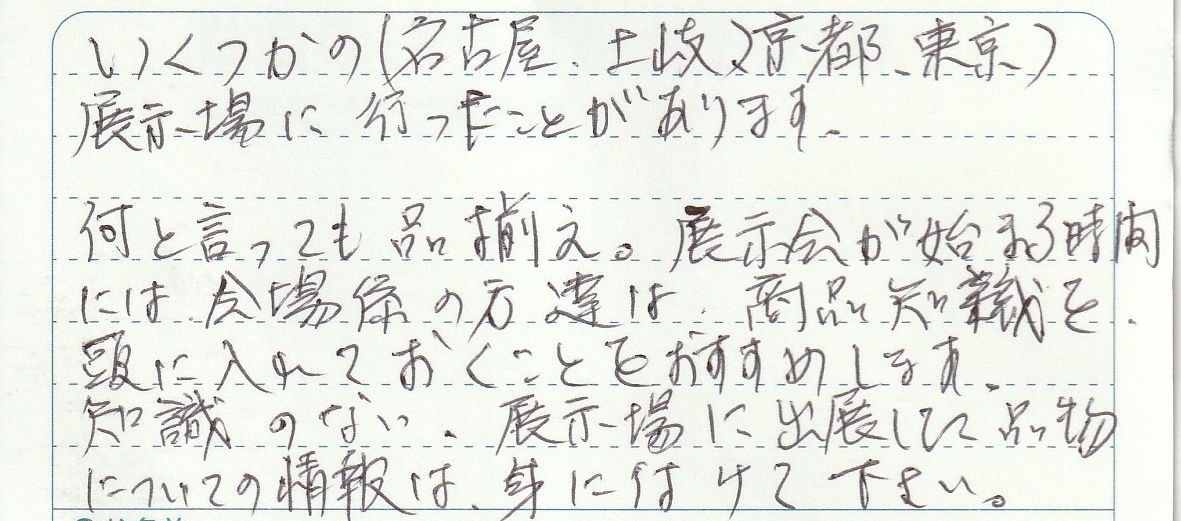 いくつかの(名古屋、土岐、京都、東京)
展示場に行ったことがあります。
何と言っても品揃え。展示会が始まる時間
には会場係の方達は、商品知識を、
頭に入れておくことをおすすめします。
知識のない、展示場に出展してる品物
についての情報は、身に付けて下さい。